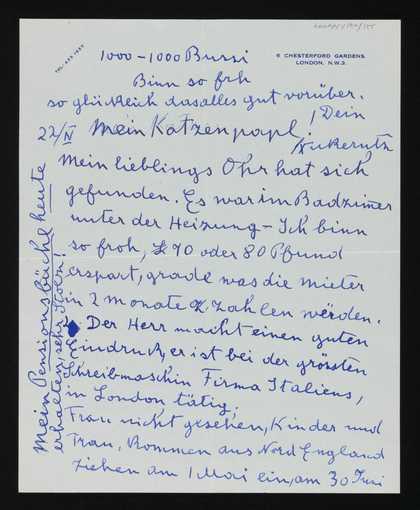 TEL. 435 1257
6 CHESTERFORD GARDENS
LONDON, N.W.3.
1000-1000 Bussi
Binn so froh
so glücklich dasalles gut vorüber.
! Dein
22/IV Mein Katzenpapl!
Mein lieblings Ohr hat sich
gefunden. Es war im Badzimer
unter der Heizung - Ich binn
so froh, £ 70 oder 80 Pfund
erspart, grade was die Mieter
in 2 Monate z. Zahlen werden.
Der Herr macht einen guten
Eindruck, er ist bei der grössten
Schreibmaschin Firma Italiens,
in London tätig,
Frau nicht gesehen, Kinder und
Frau, Kommen aus Nord England
Ziehen am 1 Mai ein, am 30 Juni
Mein Pensionsbüchl heute
erhalten, sehr Stolz!